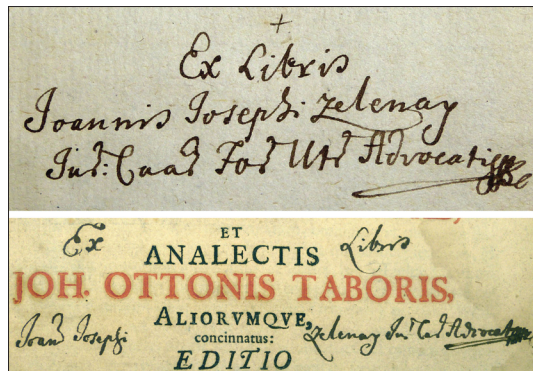 +
Ex Libris
Joannis Josephi Zelenay
Jur: Caas Fori Utr Advocati
Ex ET Libris
ANALECTIS
JOH. OTTONIS TABORIS,
ALIORVMQVE,
Joan Josephi concinnatus: Zelenay Jur Cas Advocati
EDITIO